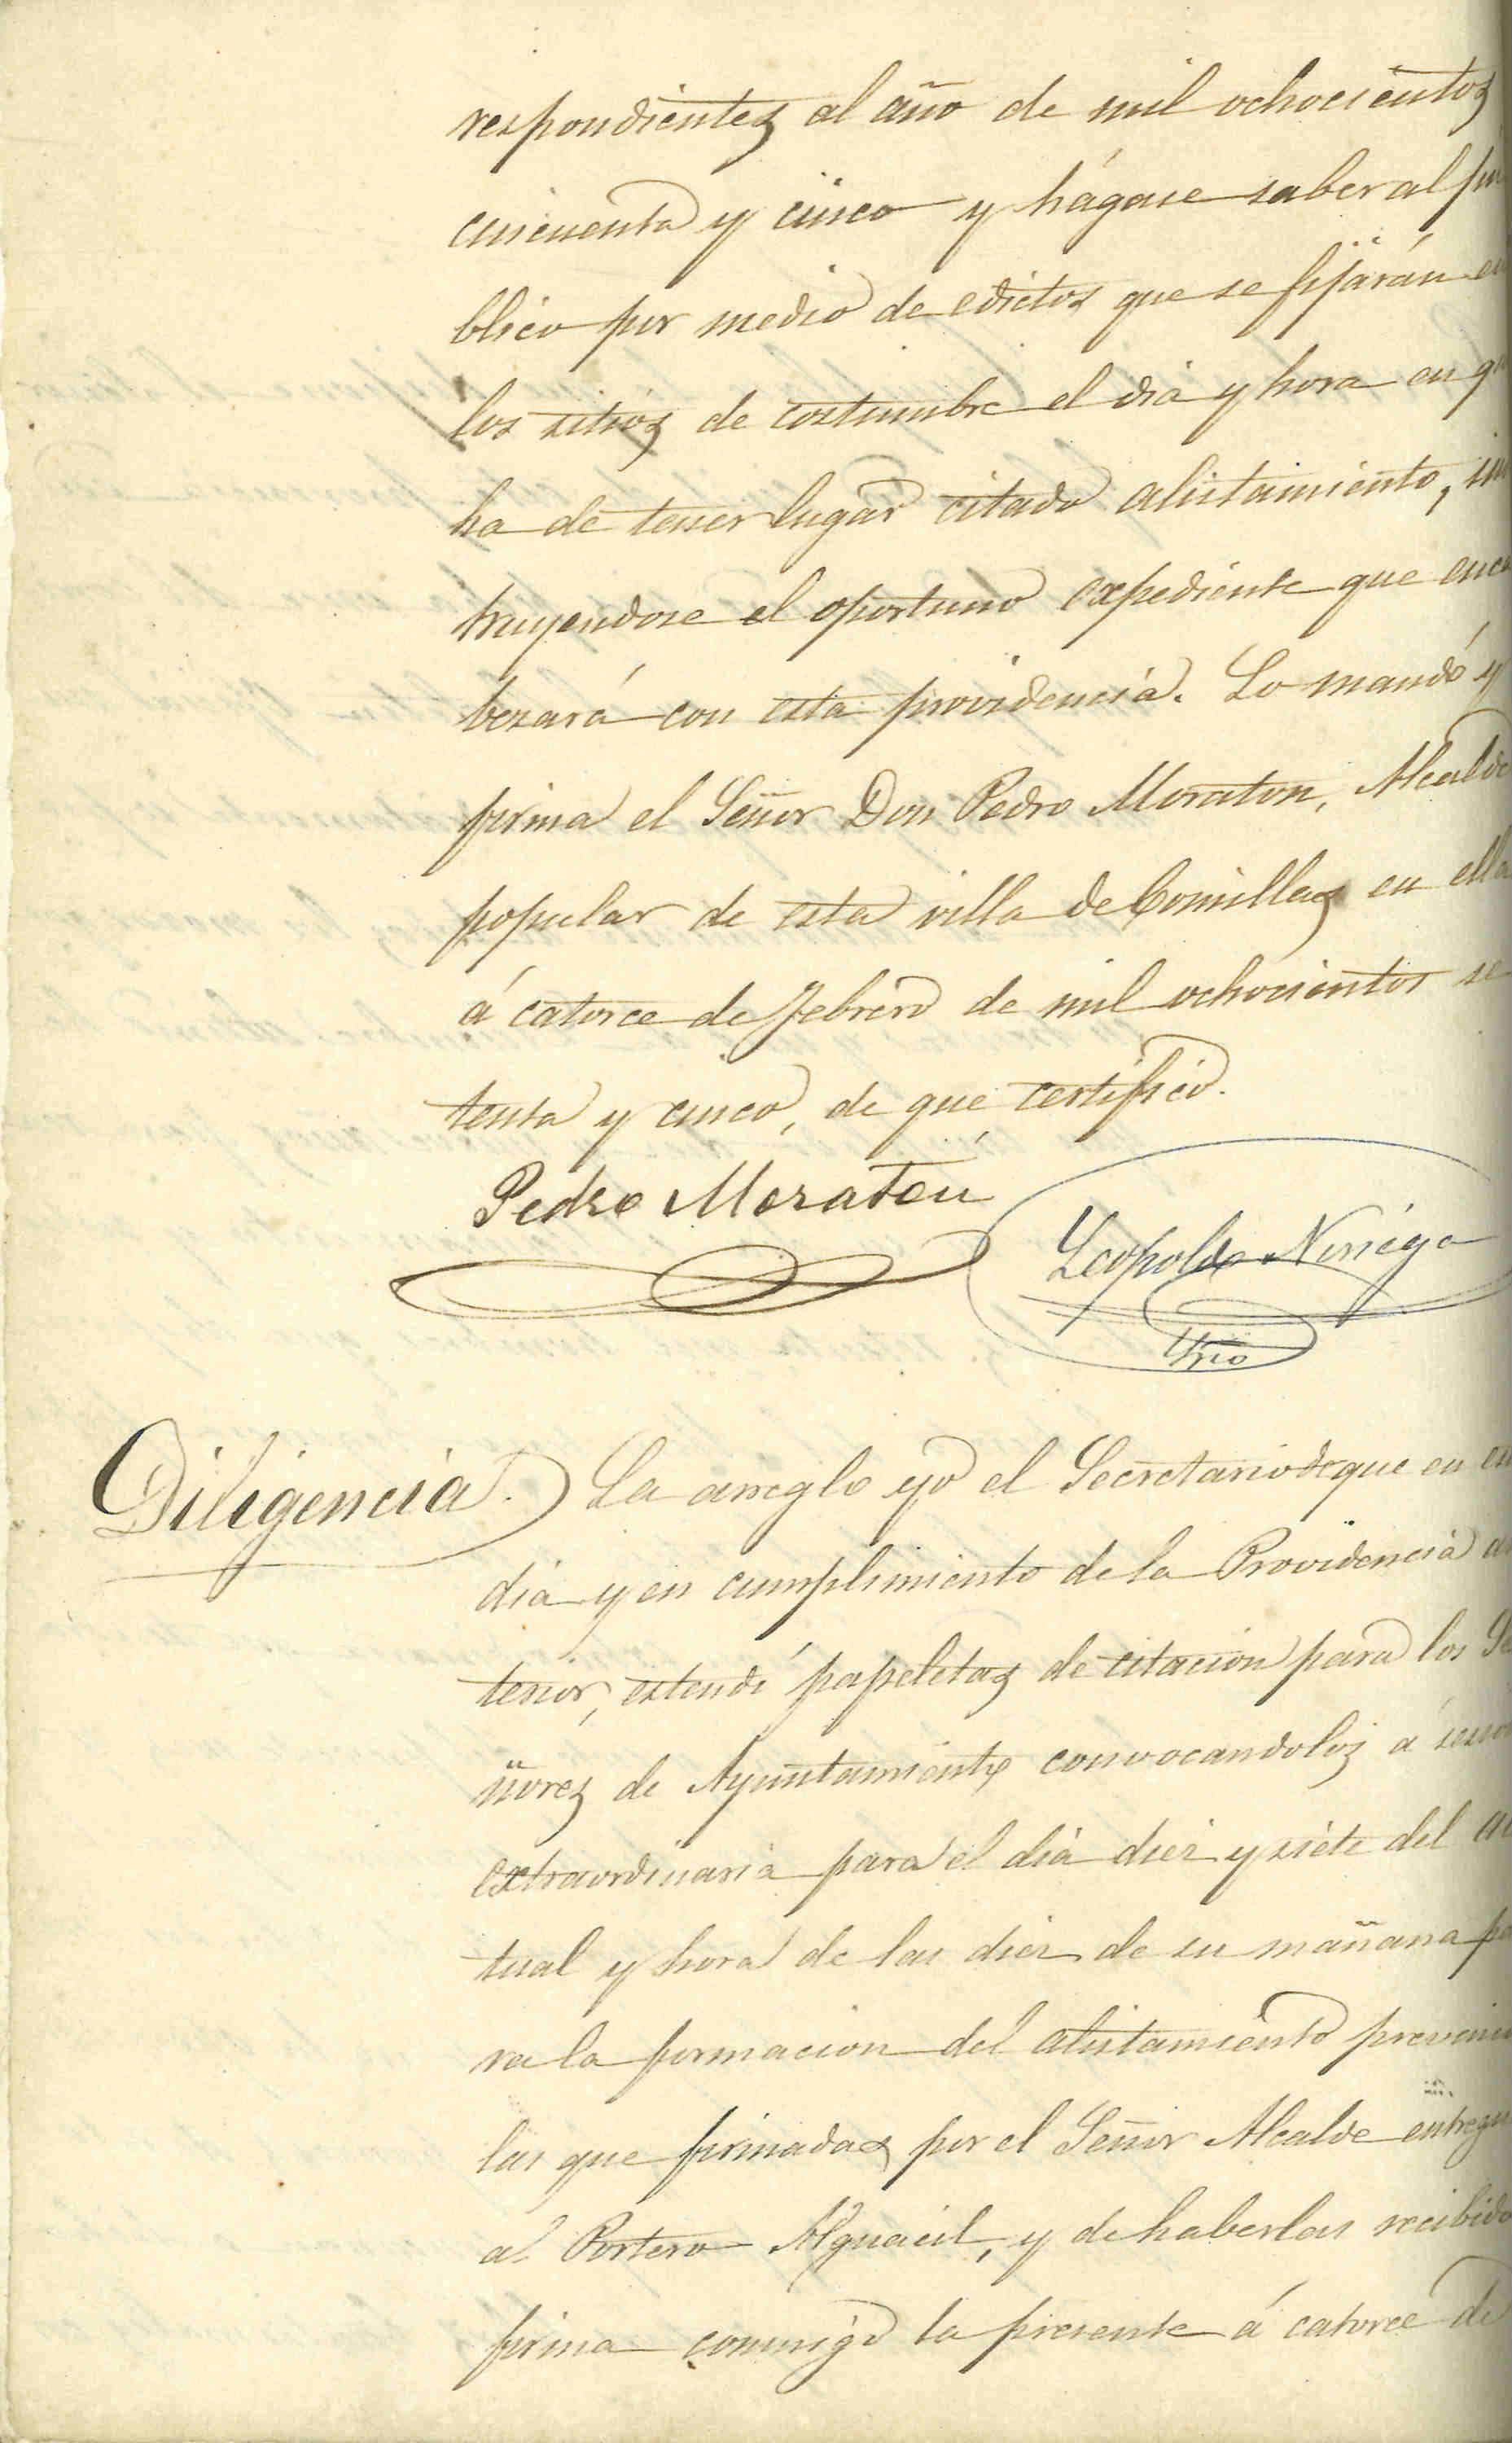 respondientes al año de mil ochocientos
cincuenta y cinco y hágase saber al pu
blico por medio de edictos que se fijarán en
los sitios de costumbre el dia y hora en qu
ha de tener lugar citado alistamiento, ins
truyendose el oportuno expediente que enca
bezará con esta providencia. Lo mandó y
firma el Señor Don Pedro Moraton, Alcalde
popular de esta villa de Comillas en ella
á catorce de Febrero de mil ochocientos se
tenta y cinco, de que certifico.
Pedro Moraton
Leopoldo Noriega
Srio
Diligencia. La arreglo yo el Secretario de que en es
dia y en cumplimiento de la Providencia an
terior, estendi papeletas de citacion para los Se
ñores de Ayuntamiento convocandolos á sesion
extraordinaria para el dia diez y siete del ac
tual y hora de las diez de su mañana pa
ra la formacion del alistamiento preveni
las que firmadas por el Señor Alcalde entregu
al Portero Alguacil, y de haberlas recibido
firma conmigo la presente á catorce de